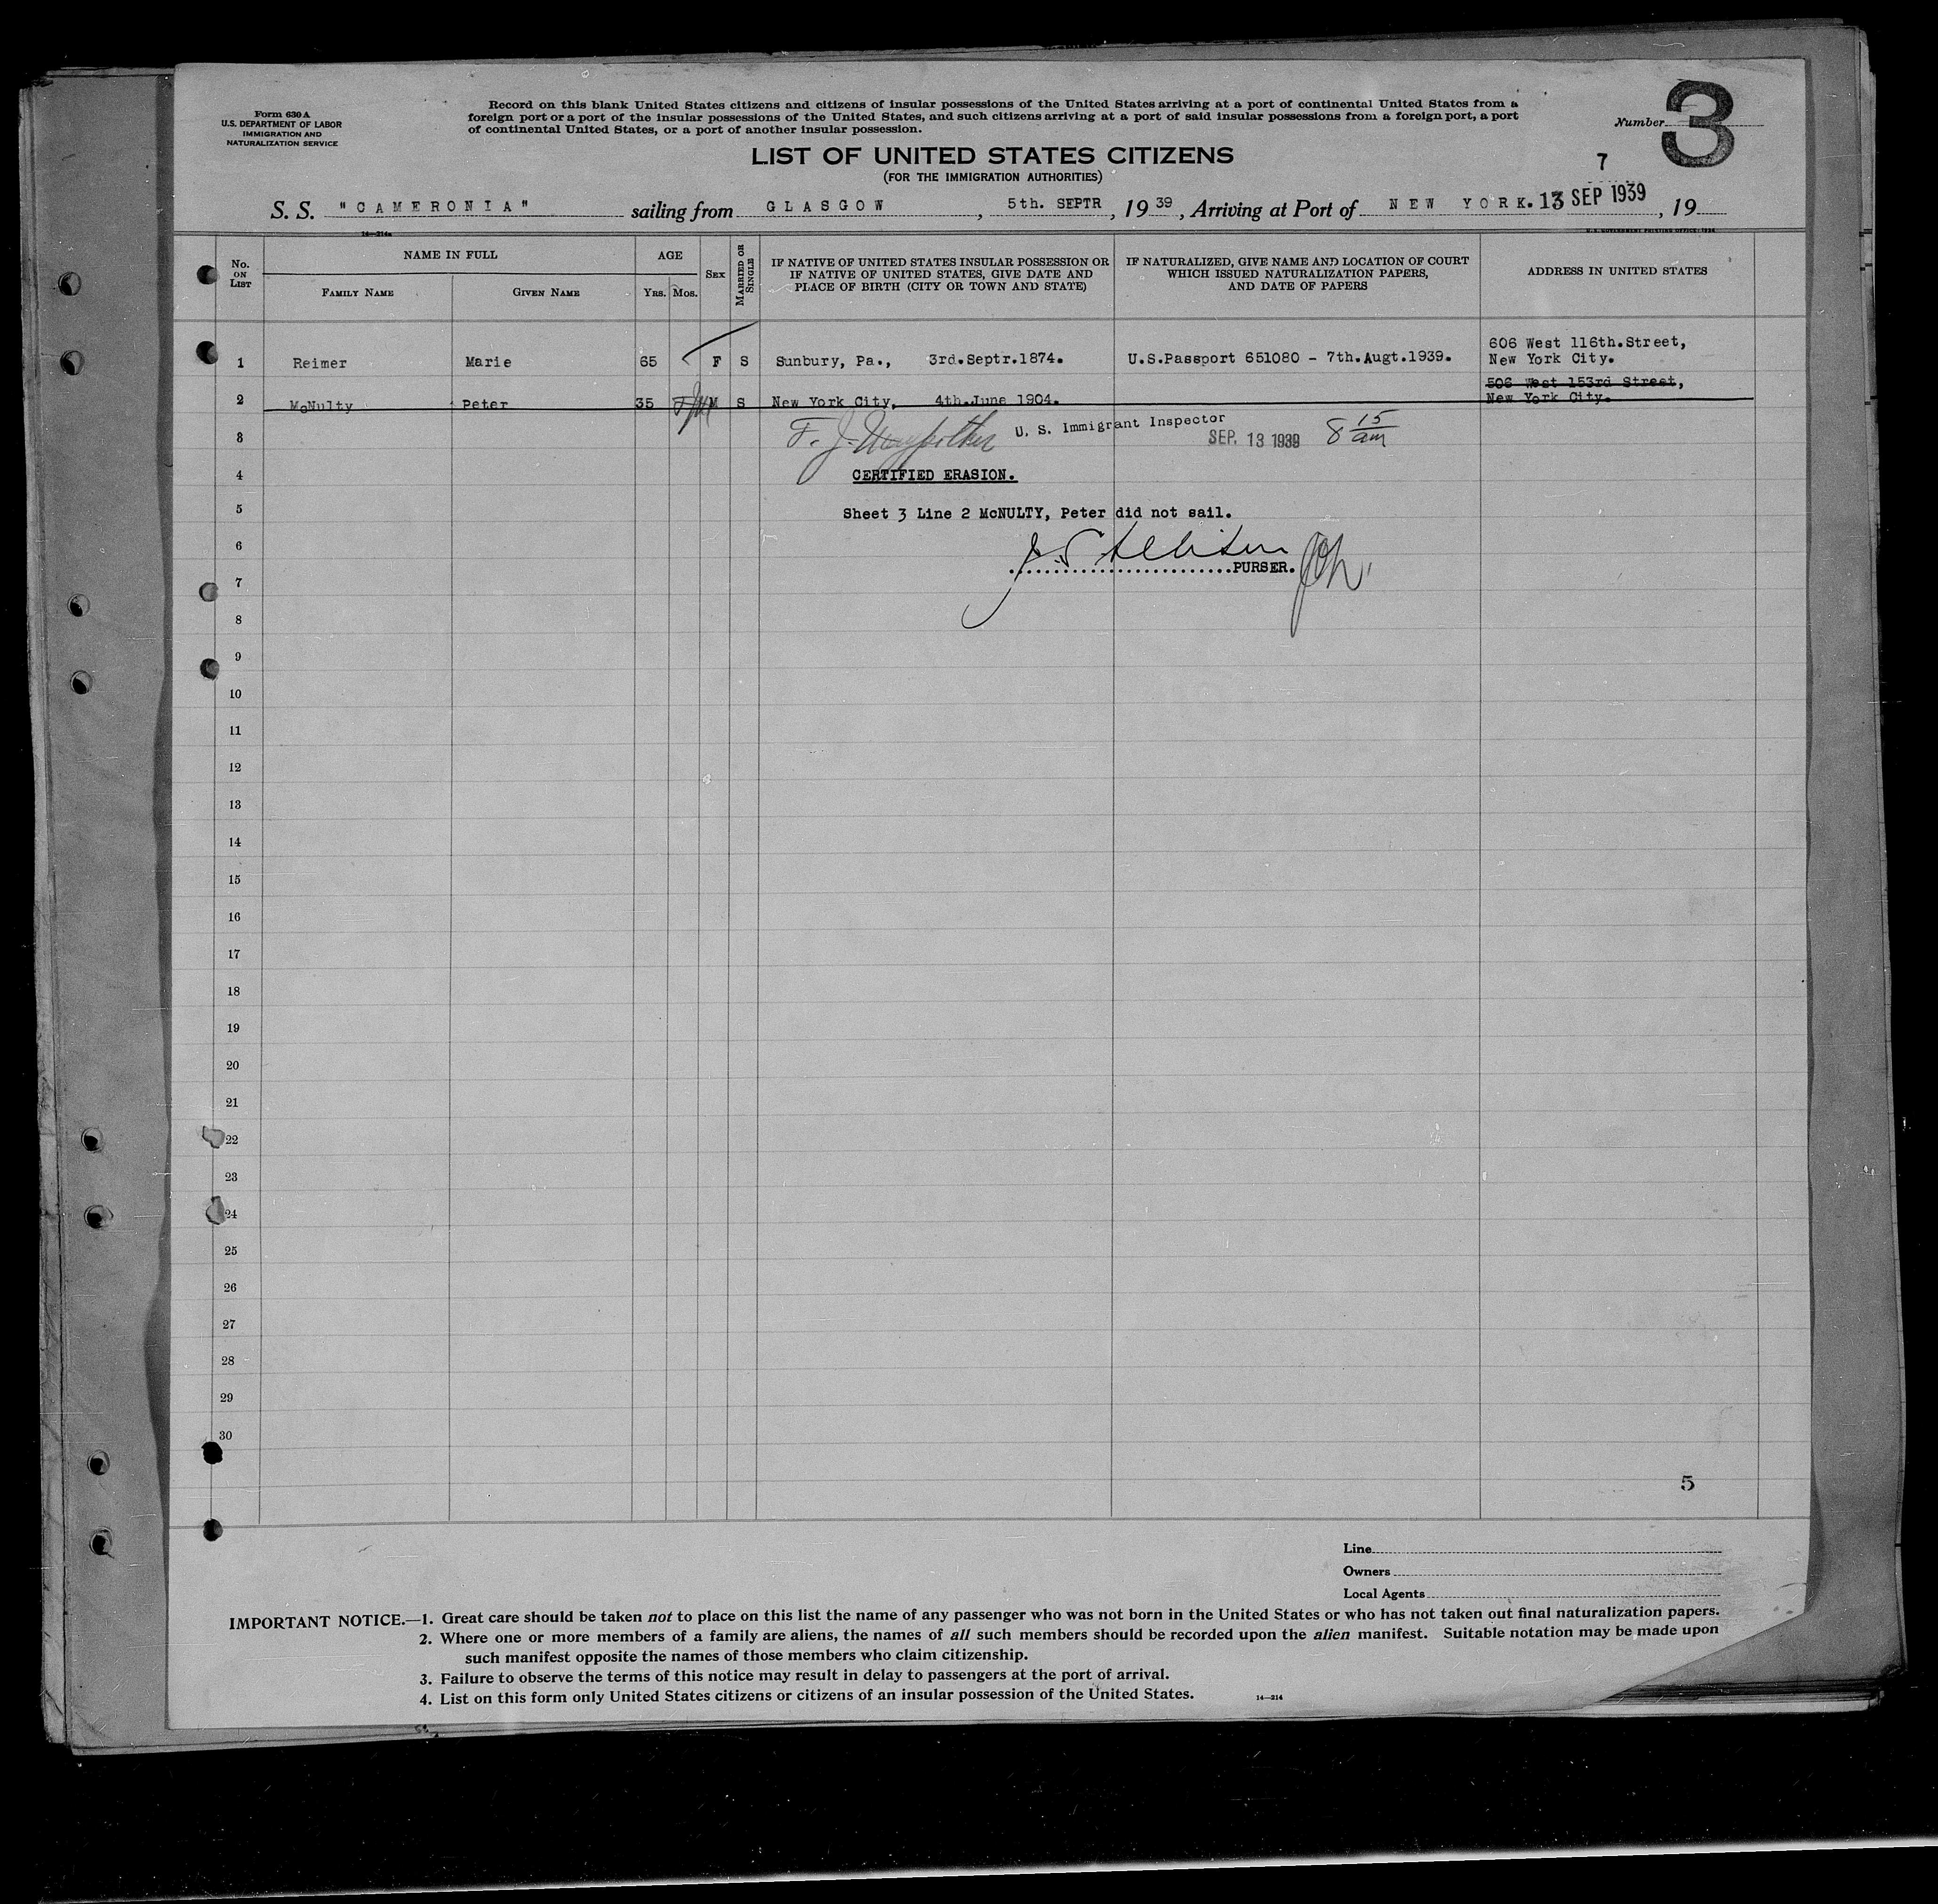 Form 630 A
U.S. DEPARTMENT OF LABOR
IMMIGRATION AND
NATURALIZATION SERVICE
Record on this blank United States citizens and citizens of insular possessions of the United States arriving at a port of continental United States from a
foreign port or a port of the insular possessions of the United States, and such citizens arriving at a port of said insular possessions from a foreign port, a port
of continental United States, or a port of another insular possession.
Number 3
LIST OF UNITED STATES CITIZENS
(FOR THE IMMIGRATION AUTHORITIES)
7
S. S. "CAMERONIA" sailing from GLASGOW, 5th. SEPTR, 19 39, Arriving at Port of NEW YORK. 13 SEP 1939, 19
14—214a
U.S. GOVERNMENT PRINTING OFFICE: 1934
No. ON LIST
NAME IN FULL
FAMILY NAME
GIVEN NAME
AGE
YRS. MOS.
SEX
MARRIED OR SINGLE
IF NATIVE OF UNITED STATES INSULAR POSSESSION OR
IF NATIVE OF UNITED STATES, GIVE DATE AND
PLACE OF BIRTH (CITY OR TOWN AND STATE)
IF NATURALIZED, GIVE NAME AND LOCATION OF COURT
WHICH ISSUED NATURALIZATION PAPERS,
AND DATE OF PAPERS
ADDRESS IN UNITED STATES
1 Reimer Marie 65 F S Sunbury, Pa., 3rd.Septr.1874. U.S.Passport 651080 - 7th.Augt.1939. 606 West 116th.Street,
New York City.
2 McNulty Peter 35 M S New York City, 4th.June 1904. 506 West 153rd Street,
New York City.
3 F. J. U. S. Immigrant Inspector SEP. 13 1939 8 15 am
4 CERTIFIED ERASION.
5 Sheet 3 Line 2 McNULTY, Peter did not sail.
6
PURSER.
7
8
9
10
11
12
13
14
15
16
17
18
19
20
21
22
23
24
25
26
27
28
29
30
5
Line
Owners
Local Agents
IMPORTANT NOTICE.—1. Great care should be taken not to place on this list the name of any passenger who was not born in the United States or who has not taken out final naturalization papers.
2. Where one or more members of a family are aliens, the names of all such members should be recorded upon the alien manifest. Suitable notation may be made upon
such manifest opposite the names of those members who claim citizenship.
3. Failure to observe the terms of this notice may result in delay to passengers at the port of arrival.
4. List on this form only United States citizens or citizens of an insular possession of the United States.
14—214